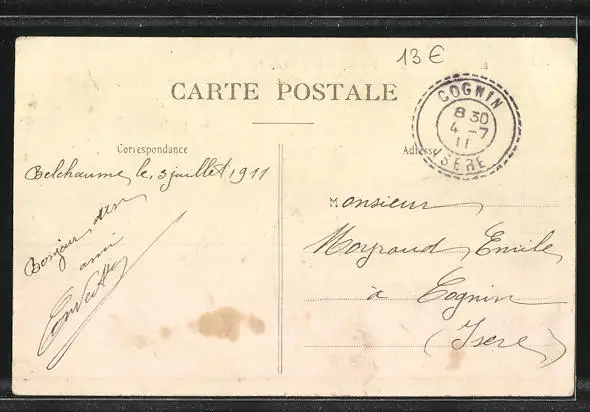 13 €
CARTE POSTALE
Correspondance
Adresse
COGNIN
8 30
4 - 7
11
ISERE
Belchaume, le, 3 juillet 1911
Bonjour d'un
ami
Monsieur
Moyroud, Emile,
à Cognin
(Isere)